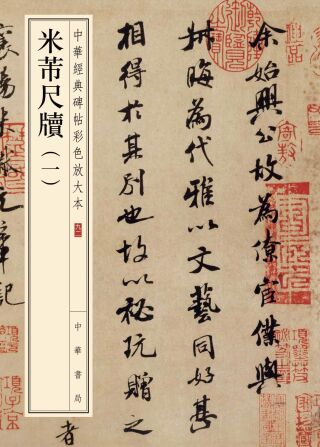 余始興公故為僚宦僕與
叔晦為代雅以文藝同好甚
相得於其別也故以秘玩贈之
中華經典碑帖彩色放大本
中華書局
米芾尺牘(一)
者
襄陽米黻元章記